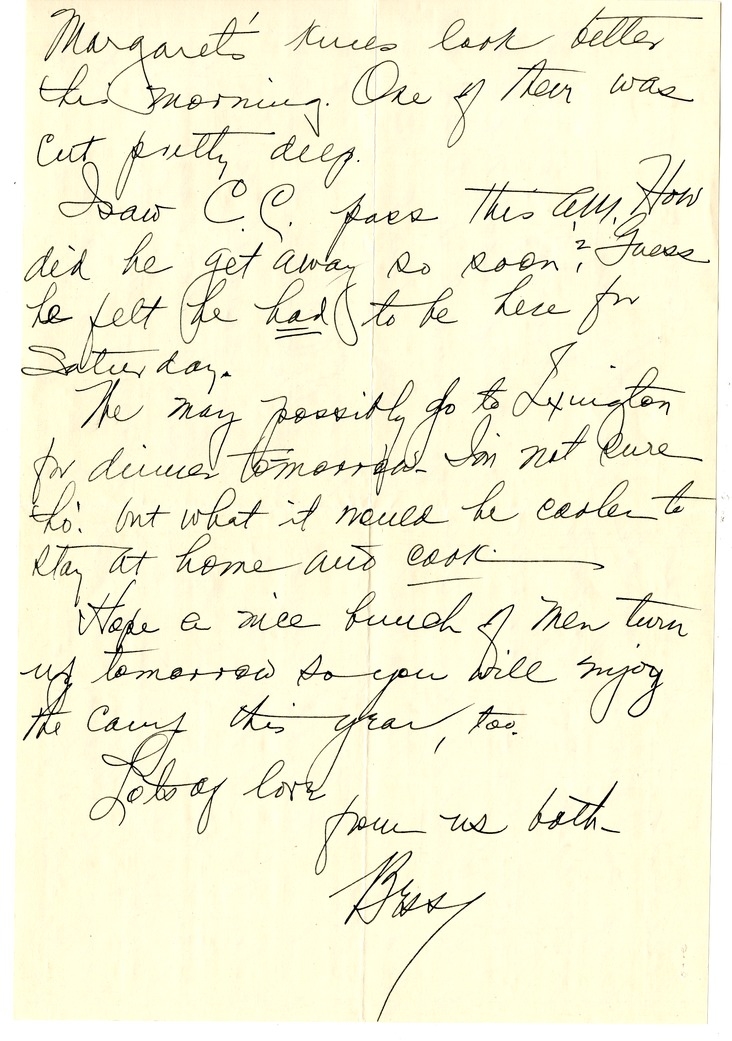 Margaret's knees look better
this morning. One of them was
cut pretty deep.
I saw C.C. pass this a.m. How
did he get away so soon? Guess
he felt he had to be here for
Saturday.
We may possibly go to Lexington
for dinner tomorrow - I'm not sure
tho' but what it would be cooler to
stay at home and cook.
Hope a nice bunch of men turn
up tomorrow so you will enjoy
the camp this year, too.
Lots of love
from us both -
Bess